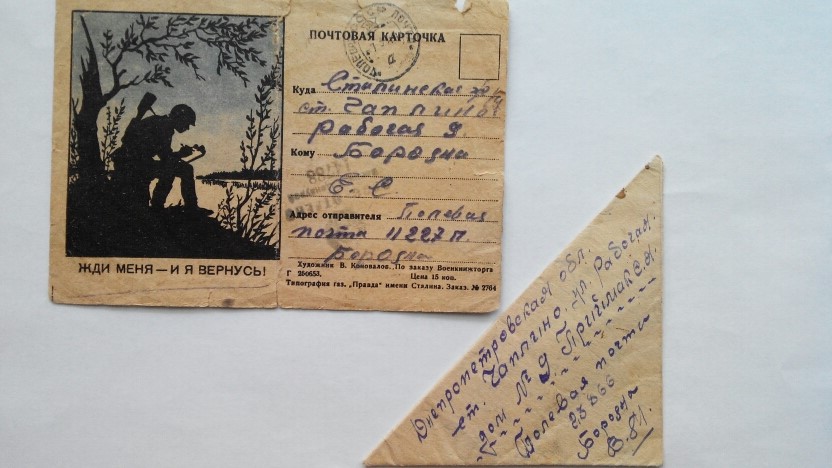 ПОЧТОВАЯ КАРТОЧКА
Куда Сталинская
ст. Чаплино
Рабочая 9.
Кому Бородна
Б. С.
Адрес отправителя Полевая
почта 11227 п.
Бородна
Художник В. Коновалов. По заказу Военкнижторга
Г 250653. Цена 15 коп.
Типография газ. „Правда" имени Сталина. Заказ. № 2764
ЖДИ МЕНЯ — И Я ВЕРНУСЬ!
Днепропетровская обл.
ст. Чаплино. ул. Рабочая.
дом № 9 Приймак
Полевая почта
Бородна